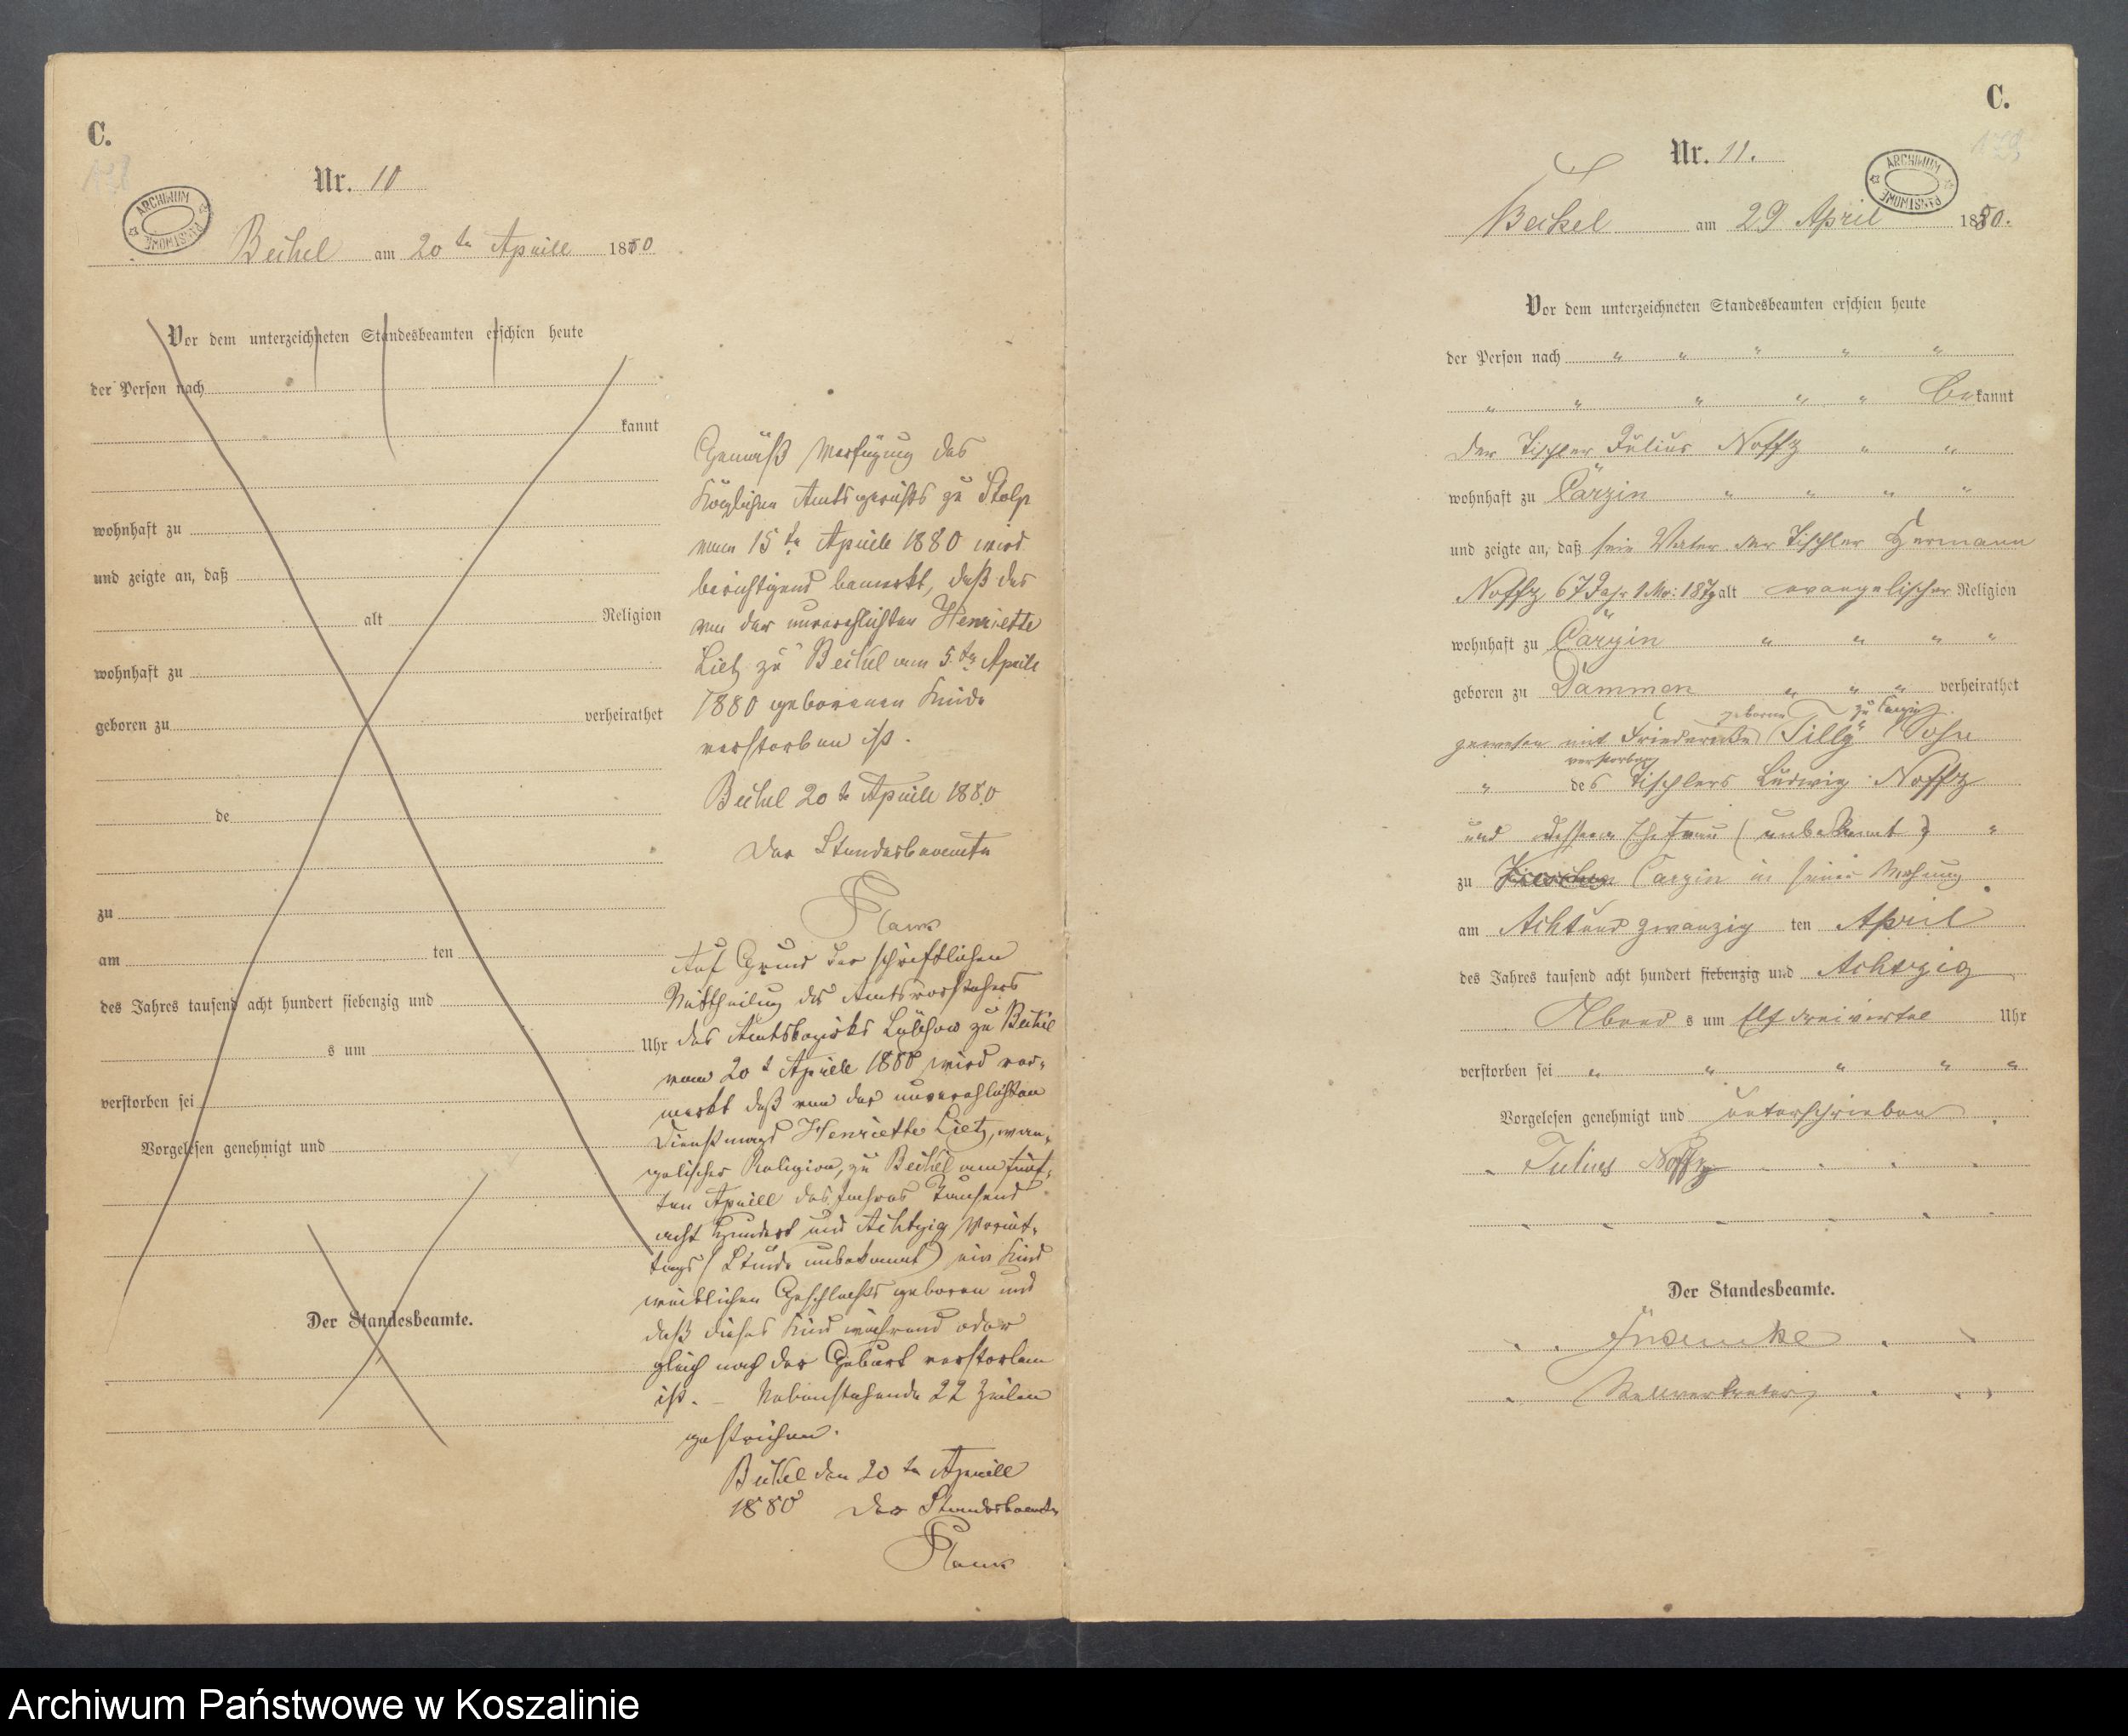 C.
178
ARCHIWUM PAŃSTWOWE
Nr. 10
Beckel am 20 ten Aprill 1880
Vor dem unterzeichneten Standesbeamten erschien heute
der Person nach
kannt
wohnhaft zu
und zeigte an, daß
alt Religion
wohnhaft zu
geboren zu verheirathet
de
zu
am ten
des Jahres tausend acht hundert siebenzig und
s um Uhr
verstorben sei
Vorgelesen genehmigt und
Der Standesbeamte.
Gemäß Verfügung des
Königlichen Amtsgerichts zu Stolp
vom 15 ten Aprill 1880 wird
berichtigend bemerkt, daß das
von der unverehlichten Henriette
Lietz zu Beckel am 5. ten Aprill
1880 geborenen Kinde
verstorben ist.
Beckel 20 te Aprill 1880
Der Standesbeamte
Auf Grund der schriftlichen
Mittheilung des Amtsvorstehers
des Amtsbezirks Lüllchow zu Beckel
vom 20 t Aprill 1880 wird ver-
merkt daß von der unverehlichten
Dienstmagd Henriette Lietz, evan-
gelischer Religion, zu Beckel am fünf-
ten Aprill des Jahres Tausend
acht Hundert und Achtzig Vormit-
tags (Stunde unbekannt) ein Kind
weiblichen Geschlechts geboren und
daß dieses Kind während oder
gleich nach der Geburt verstorben
ist. – Nebenstehende 22 Zeilen
gestrichen.
Beckel den 20 ten Aprill
1880 Der Standesbeamte
C.
179
Nr. 11.
ARCHIWUM PAŃSTWOWE
Beckel am 29 April 1880.
Vor dem unterzeichneten Standesbeamten erschien heute
der Person nach " " " " "
" " " " " bekannt
der Tischler Julius Noffz " "
wohnhaft zu Carzin " " " "
und zeigte an, daß sein Vater der Tischler Hermann
Noffz, 67 Jahr 1 Mo: 18 Tg alt evangelischer Religion
wohnhaft zu Carzin " " " "
geboren zu Dammen " " " verheirathet
geborne zu Carzin
gewesen mit Friederike Tilly Sohn
verstorben
" des Tischlers Ludwig Noffz
und dessen Ehefrau (unbekannt) "
zu Carzin in seiner Wohnung
am Achtund zwanzig ten April
des Jahres tausend acht hundert siebenzig und Achtzig
Abend s um Elf dreiviertel Uhr
verstorben sei " " " " "
Vorgelesen genehmigt und unterschrieben
Julius Noffz
Der Standesbeamte.
Stellvertreter
Archiwum Państwowe w Koszalinie